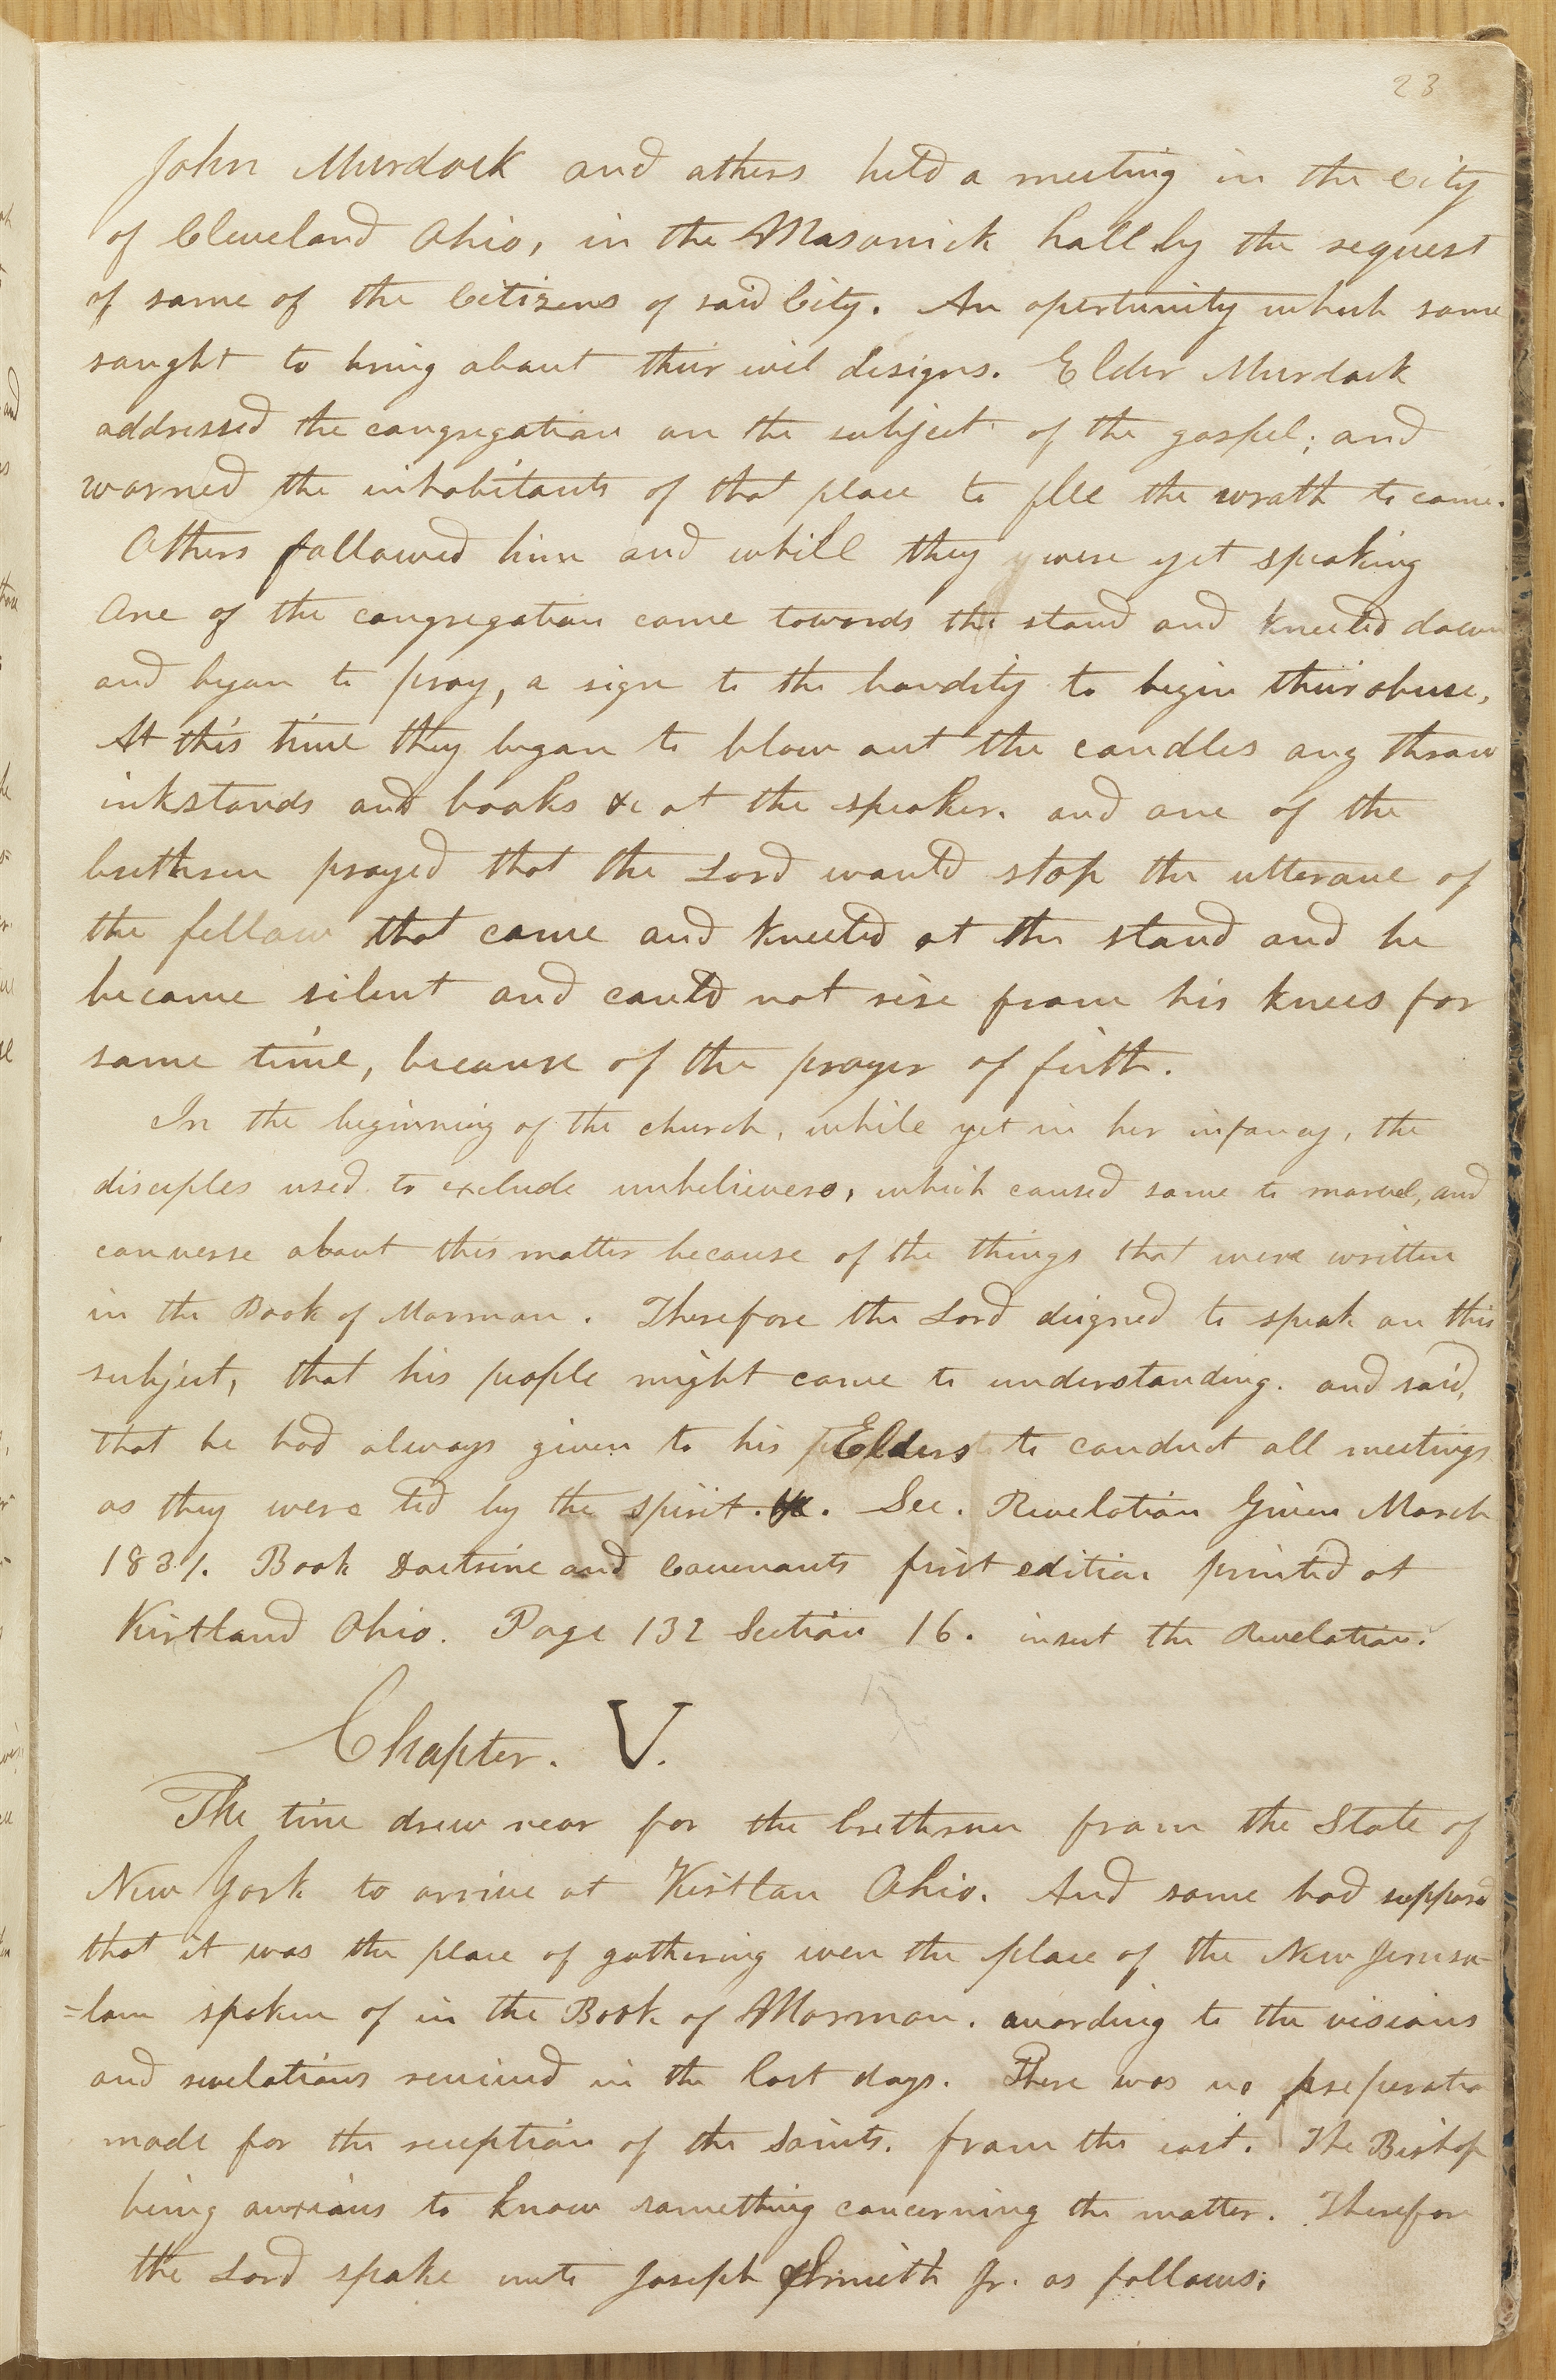 23
John Murdock and others held a meeting in the City
of Cleveland Ohio, in the Masonick hall by the request
of some of the Citizens of said City. An opertunity which some
sought to bring about their evil designs. Elder Murdock
addressed the congregation on the subject of the gospel; and
warned the inhabitants of that place to flee the wrath to come.
Others followed him and while they were yet speaking
One of the congregation came towards the stand and kneeled down
and began to pray, a sign to the banditty to begin their abuse,
At this time they began to blow out the candles ang throw
inkstands and books &c at the speaker. and one of the
brethren prayed that the Lord would stop the utterance of
the fellow that came and kneeled at the stand and he
became silent and could not rise from his knees for
some time, because of the prayer of fiith.
In the beginning of the church, while yet in her infancy, the
disciples used to exclude unbelievers, which caused some to marvel, and
converse about this matter because of the things that were written
in the Book of Mormon. Therefore the Lord deigned to speak on this
subject, that his people might come to understanding. and said,
that he had always given to his Elders to conduct all meetings
as they were led by the spirit. &c. See. Revelation Given March
1831. Book Doctrine and Covenants first edition printed at
Kirtland Ohio. Page 132 Section 16. insert the Revelation.
Chapter. V.
The time drew near for the brethren from the State of
New York to arrive at Kirtlan Ohio. And some had supposed
that it was the place of gathering even the place of the New Jerusa-
=lam spoken of in the Book of Mormon. according to the visions
and revelations received in the last days. There was no preperatio
made for the reception of the Saints. from the east. The Bishop
being anxious to know something concerning the matter. Therefore
the Lord spake unto Joseph Smith Jr. as follows: